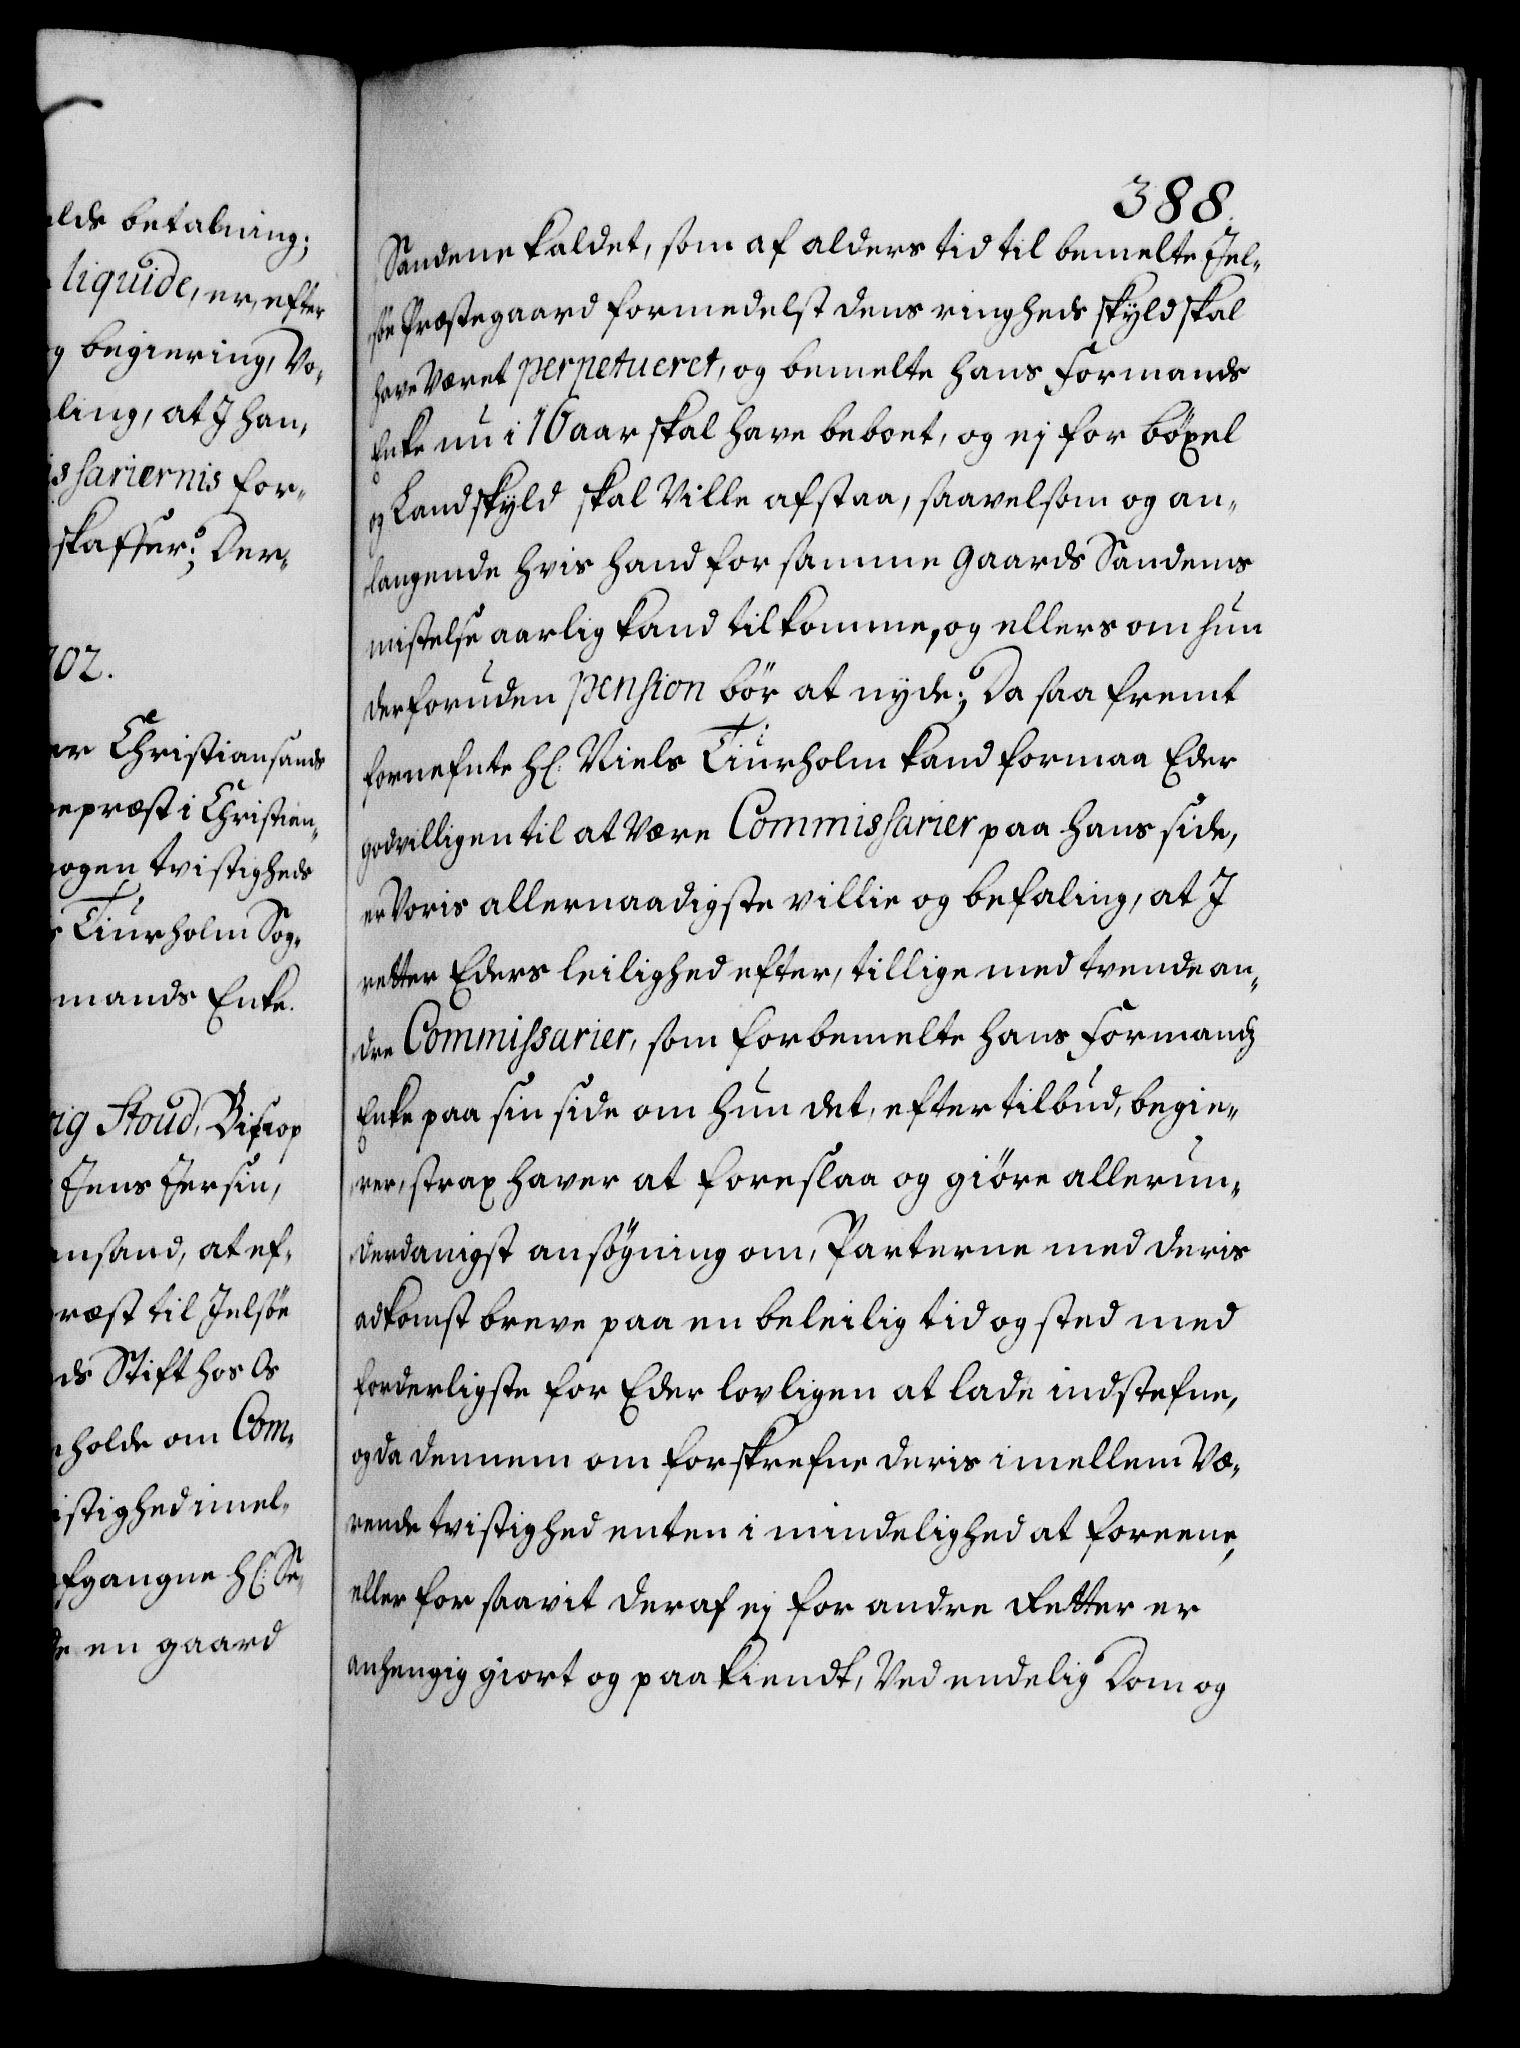 alds betalning;
liquide, er, efter
og begiering, Vo-
ling, at J han,
issariernis for-
skaffer; Der-
702.
er Christiansands
epræst i Christian-
nogen tvistigheds
s Tiurholm Sog-
mands Enke.
vig Stoud, Biscop
Jens Jersin,
ansand, at ef-
ræst til Jelsöe
ds Stift hos Os
holde om Com-
istighed imel-
afgangne Hr: Se-
de en gaard
388.
Sandene kaldet, som af alders tid til bemelte Jel-
söe Præstegaard formedelst dens ringheds skyld skal
have Været perpetueret, og bemelte hans Formands
Enke nu i 16 aar skal have beboet, og ej for böxel
og Landskyld skal Ville afstaa, saavelsom og an-
langende hvis hand for samme gaards Sandenes
mistelse aarlig kand tilkomme, og ellers om hun
derforuden pension bör at nyde; Da saa fremt
fornefnte Hr: Niels Tiurholm kand formaa Eder
godvilligen til at Være Commissarier paa hans side,
er Voris allernaadigste villie og befaling, at J
retter Eders leilighed efter, tillige med tvende an-
dre Commissarier, som forbemelte hans Formands
Enke paa sin side om hun det, efter tilbud, begie-
rer, strax haver at foreslaa og giöre allerun-
derdanigst ansögning om, Parterne med deris
adkomst breve paa en beleilig tid og sted med
forderligste for Eder lovligen at lade indstefne,
og da dennem om forskrefne deris imellem Væ-
rende tvistighed enten i mindelighed at foreene,
eller for saavit deraf ej for andre Retter er
anhengig giort og paakiendt, Ved endelig Dom og